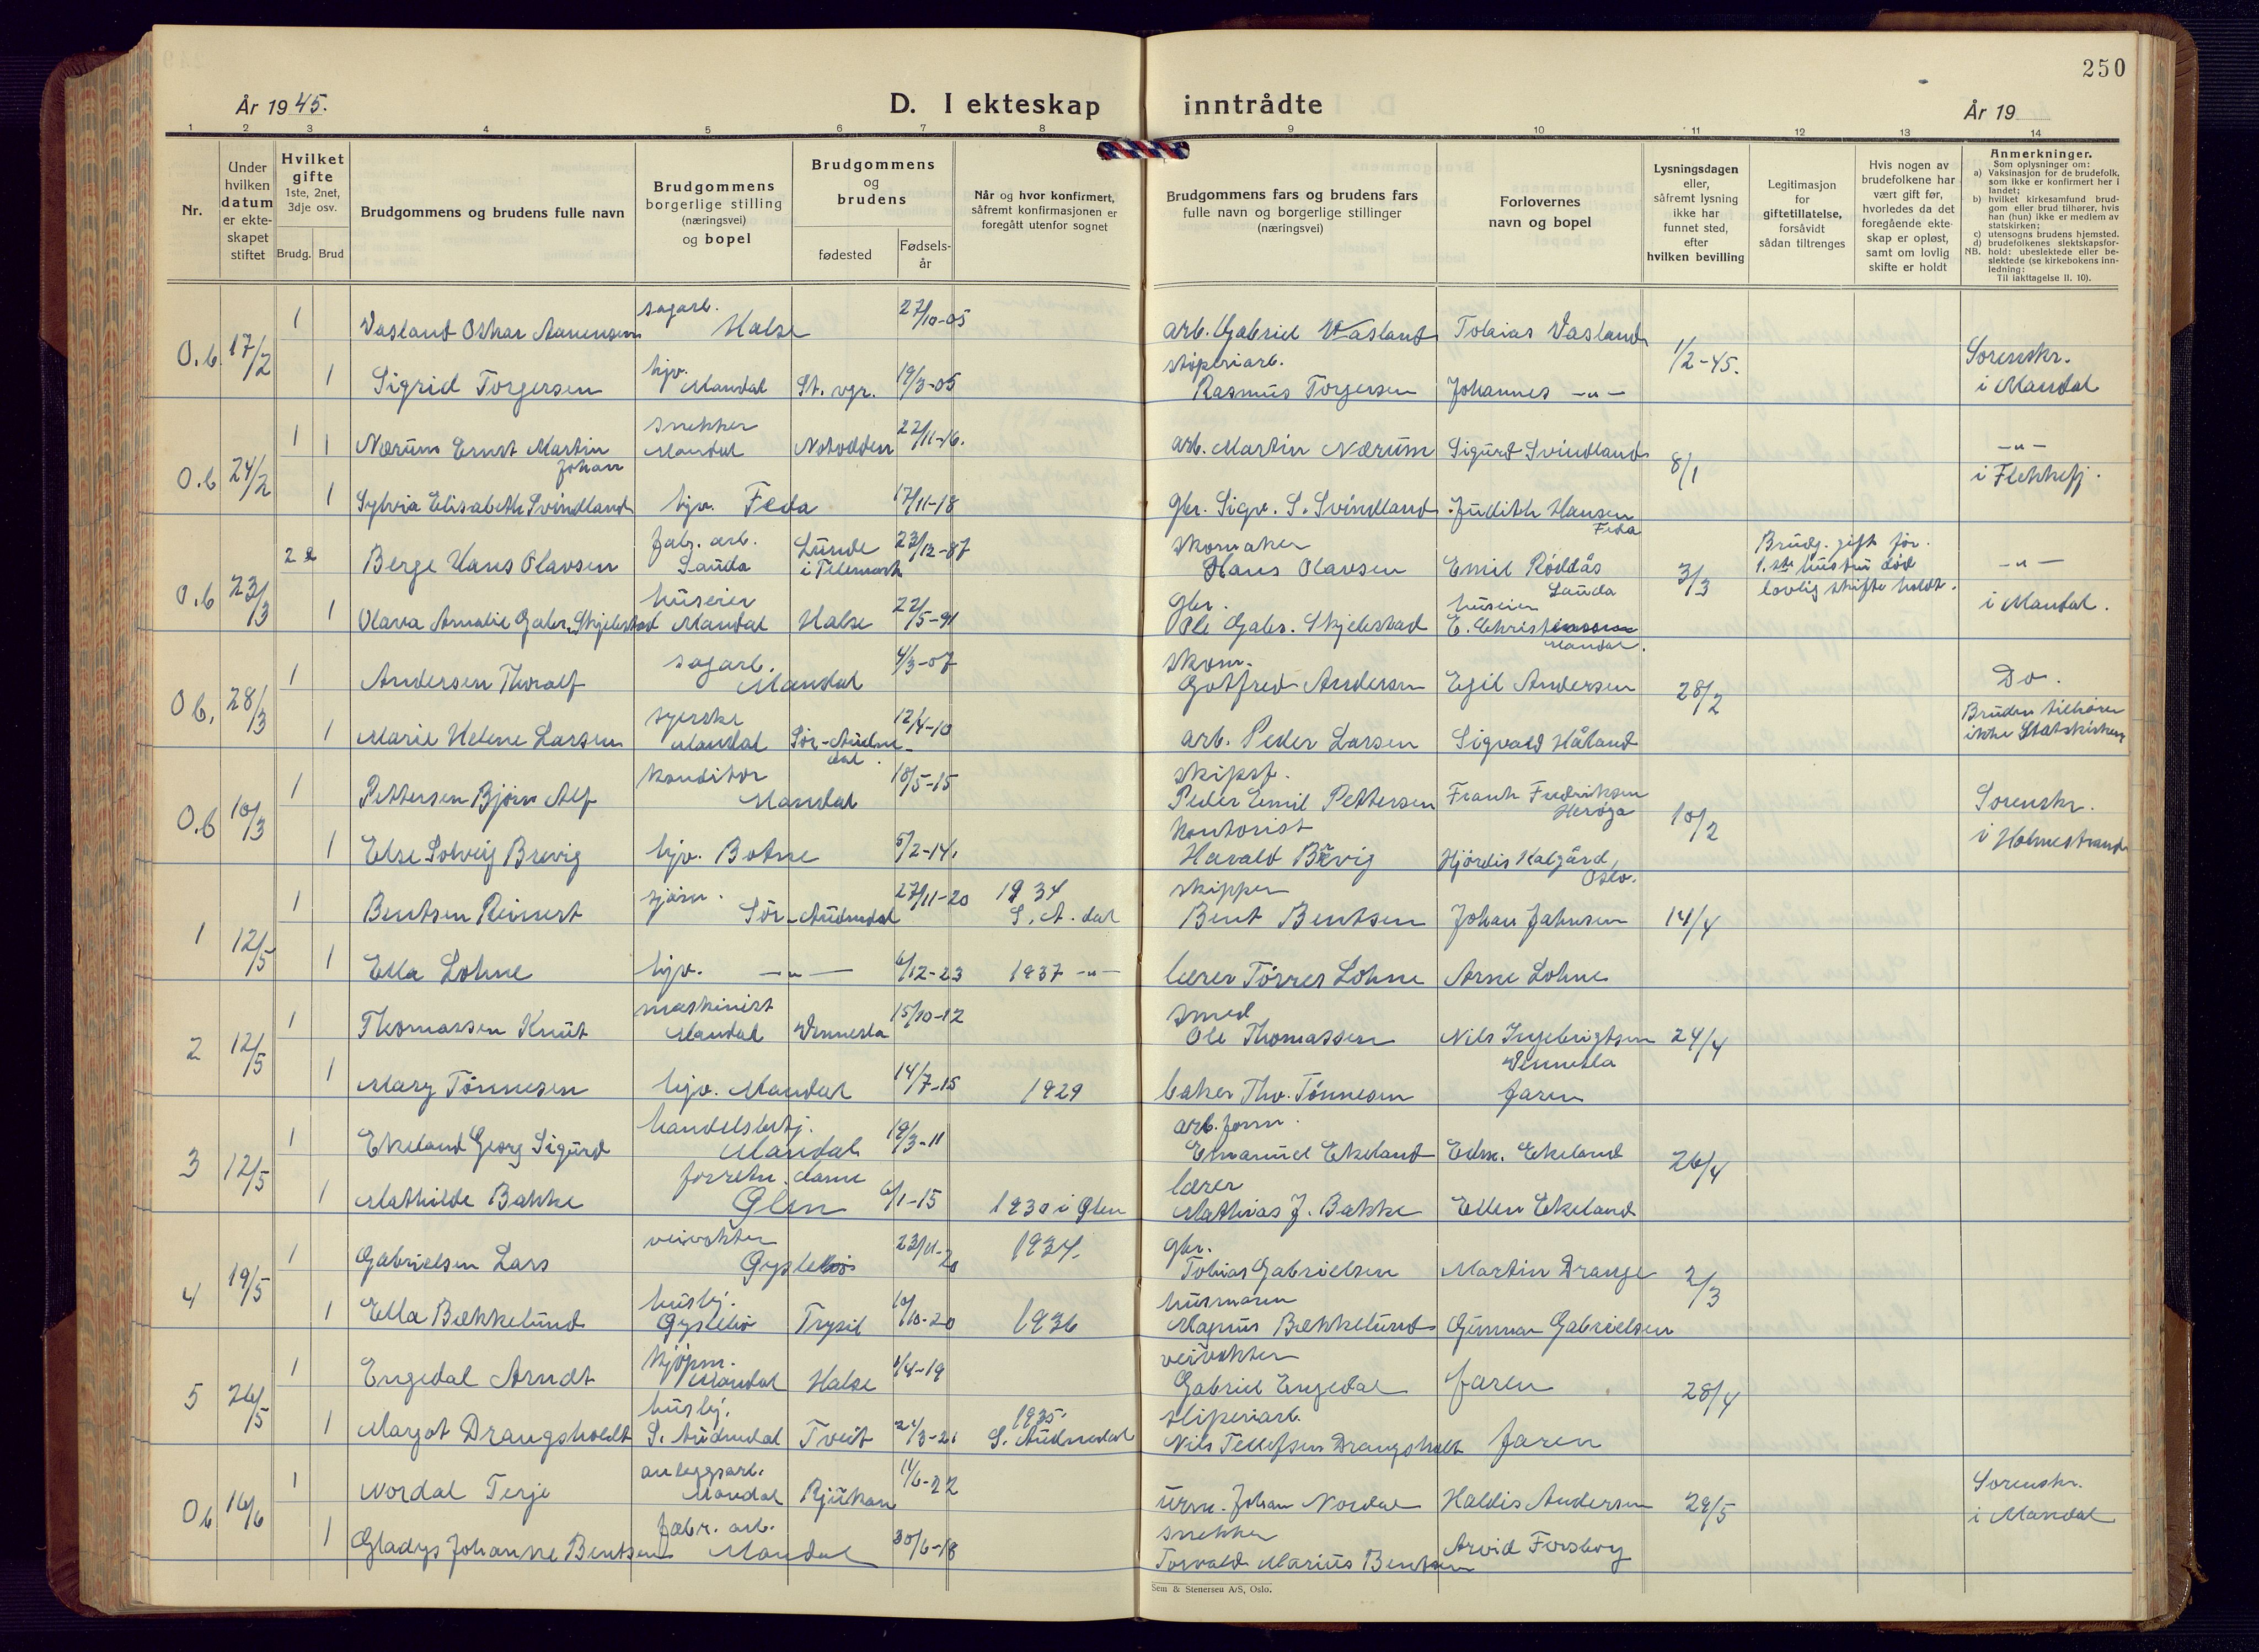 250
År 1945.
D. I ekteskap inntrådte
År 19
1 2 3 4 5 6 7 8 9 10 11 12 13 14
Nr.
Under
hvilken
datum
er ekte-
skapet
stiftet
Hvilket
gifte
1ste, 2net,
3dje osv.
Brudg.
Brud
Brudgommens og brudens fulle navn
Brudgommens
borgerlige stilling
(næringsvei)
og bopel
Brudgommens
og
brudens
fødested
Fødsels-
år
Når og hvor konfirmert,
såfremt konfirmasjonen er
foregått utenfor sognet
Brudgommens fars og brudens fars
fulle navn og borgerlige stillinger
(næringsvei)
Forlovernes
navn og bopel
Lysningsdagen
eller,
såfremt lysning
ikke har
funnet sted,
efter
hvilken bevilling
Legitimasjon
for
giftetillatelse,
forsåvidt
sådan tiltrenges
Hvis nogen av
brudefolkene har
vært gift før,
hvorledes da det
foregående ekte-
skap er opløst,
samt om lovlig
skifte er holdt
Anmerkninger.
Som oplysninger om:
a) Vaksinasjon for de brudefolk,
som ikke er konfirmert her i
landet;
b) hvilket kirkesamfund brud-
gom eller brud tilhører, hvis
han (hun) ikke er medlem av
statskirken;
c) utensogns brudens hjemsted.
d) brudefolkenes slektskapsfor-
NB. hold: ubeslektede eller be-
slektede (se kirkebokens inn-
ledning:
Til iakttagelse II. 10).
O.b. 17/2
1 Vasland Oskar Aanensen sagarb. Halse 27/10-05 arb. Gabriel Vasland Tobias Vasland
1/2-45. Sorenskr.
i Mandal
1 Sigrid Torgersen hjv. Mandal St. vgr. 19/3-05 støperiarb.
Rasmus Torgersen Johannes -"-
O.b 24/2
1 1 Nærum Ernst Martin
Johan
snekker
Mandal Notodden 22/11-16. arb. Martin Nærum Sigurd Svindland
8/1 -"-
i Flekkefj.
1 Sylvia Elisabeth Svindland hjv. Feda 17/11-18 gbr. Sigv. S. Svindland Judith Hansen
Feda
O.b 23/3
2 Berge Hans Olavsen fabr. arb.
Sauda Lunde
i Telemark 23/12-87 skomaker
Hans Olavsen Emil Røddås
Sauda
3/3 Brudg. gift før.
1.ste hustru død
lovlig skifte holdt.
-"-
i Mandal.
1 Olava Amalie Gabr. Skjelstad huseier
Mandal Halse 22/5-91 gbr.
Ole Gabr. Skjelstad huseier
E. Christensen
Mandal.
O.b. 28/3
1 Andersen Thoralf sagarb.
Mandal 4/3-07 skom.
Gotfred Andersen Egil Andersen 28/2 Do.
Bruden tilhører
ikke Statskirken
1 Marie Helene Larsen syerske
Mandal Sør-Audne-
dal. 12/4-10 arb. Peder Larsen Sigvald Håland
O.b 10/3
1 Pettersen Bjørn Alf konditor
Mandal 18/5-15 skipsf.
Peder Emil Pettersen Frank Fredriksen
Herøya
10/2 Sorenskr.
i Holmestrand
1 Else Solveig Brevig hjv. Botne 5/2-14. kontorist
Harald Brevig Hjördis Kalgård,
Oslo.
1 12/5
1 Bentsen Reinert sjøm.
Sør-Audnedal 27/11-20 1934
S. A. dal skipper
Bent Bentsen Johan Jahnsen 14/4
1 Ella Lohne hjv. -"- 6/12-23 1937 -"- lærer Tørres Lohne Arne Lohne
2 12/5
1 Thomassen Knut maskinist
Mandal Vennesla 15/10-12 smed
Ole Thomassen Nils Ingebrigtsen
Vennesla 24/4
1 Mary Tönnesen hjv. Mandal 14/7-15 1929 baker Thv. Tönnesen faren
3 12/5
1 Ekeland Georg Sigurd handelsbetj.
Mandal 19/3-11 arb.form.
Emanuel Ekeland Edm. Ekeland 26/4
1 Mathilde Bakke forretn. dame
Glen 6/1-15 1930 i Glen lærer
Mathias J. Bakke Ellen Ekeland
4 19/5
1 Gabrielsen Lars veivokter
Gyslebø 23/11-20 1934. gbr.
Tobias Gabrielsen Martin Drange 2/3
1 Ella Bækkelund husbj.
Gyslebö Trysil 10/10-20 1936 husmann
Magnus Bækkelund Gunnar Gabrielsen
5 26/5
1 Engedal Arndt kjøpm.
Mandal Halse 1/4-19 veivokter
Gabriel Engedal faren 28/4
1 Margot Drangsholdt husbj.
S. Audnedal Tveit 21/3-21 1935.
S. Audnedal sliperiarb.
Nils Tellefsen Drangsholt faren
Ob 16/6
1 Nordal Terje anleggsarb.
Mandal Rjukan 11/6-22 urm. Johan Nordal Haldis Andersen 29/5 Sorenskr.
i Mandal
1 Gladys Johanne Bentsen fabr. arb.
Mandal 30/6-18 snekker
Torvald Marius Bentsen Arvid Forsberg
Sem & Stenersen A/S, Oslo.